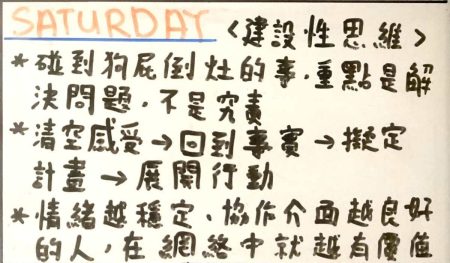 SATURDAY <建設性思維>
*碰到狗屁倒灶的事,重點是解
決問題,不是究責
*清空感受→回到事實→擬定
計畫→展開行動
*情緒越穩定、協作介面越良好
的人,在網絡中就越有價值